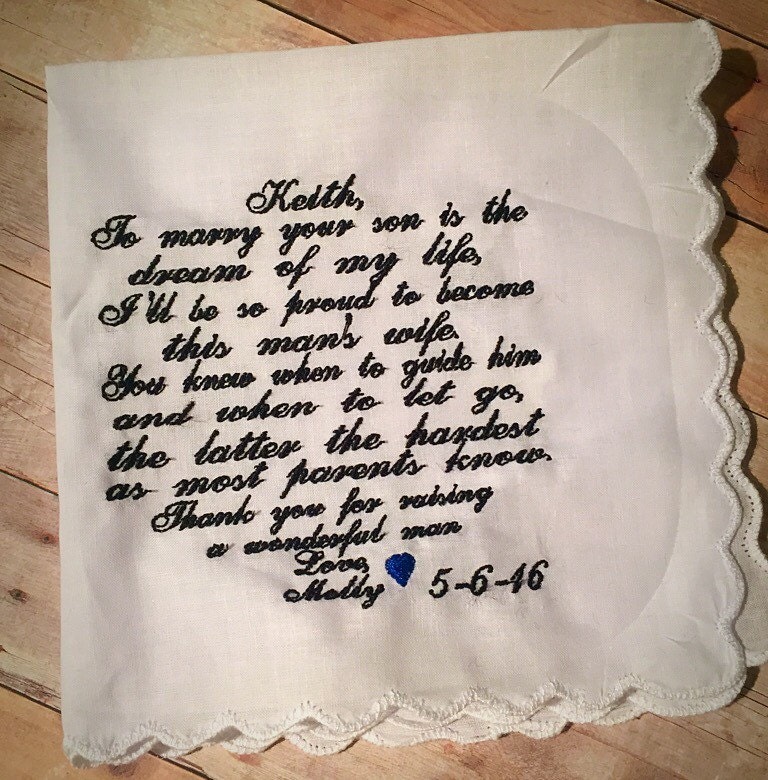 Keith,
To marry your son is the
dream of my life,
I'll be so proud to become
this man's wife.
You knew when to guide him
and when to let go,
the latter the hardest
as most parents know.
Thank you for raising
a wonderful man
Love,
Molly 5-6-46